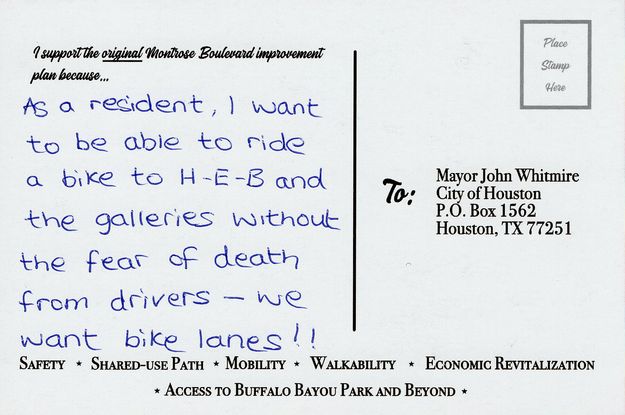 I support the original Montrose Boulevard improvement
plan because...
As a resident, I want
to be able to ride
a bike to H-E-B and
the galleries without
the fear of death
from drivers – we
want bike lanes!!
Place
Stamp
Here
To:
Mayor John Whitmire
City of Houston
P.O. Box 1562
Houston, TX 77251
SAFETY ⋆ SHARED-USE PATH ⋆ MOBILITY ⋆ WALKABILITY ⋆ ECONOMIC REVITALIZATION
⋆ ACCESS TO BUFFALO BAYOU PARK AND BEYOND ⋆